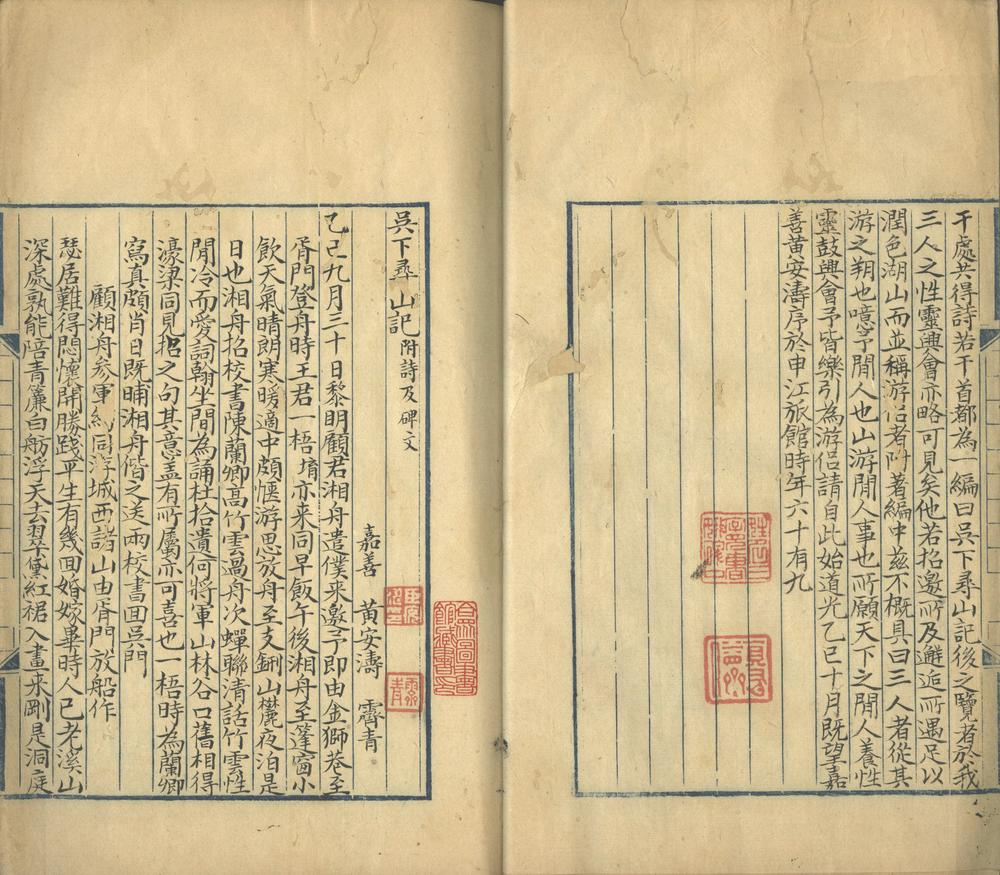 干處共得詩若干首都為一編曰吳下尋山記後之覽者於我
三人之性靈興會亦略可見矣他若招邀所及邂逅所遇足以
潤色湖山而並稱游侶者附著編中茲不概具曰三人者從其
游之朔也噫予閒人也山游閒人事也所願天下之閒人養性
靈鼓興會予皆樂引為游侶請自此始道光乙巳十月既望嘉
善黃安濤序於申江旅館時年六十有九
吳下尋山記附詩及碑文
嘉善 黃安濤 霽青
乙巳九月三十日黎明顧君湘舟遣僕來邀予即由金獅巷至
胥門登舟時王君一梧堉亦来同早飯午後湘舟至篷窗小
飲天氣晴朗寒暖適中頗愜游思放舟至支硎山麓夜泊是
日也湘舟招校書陳蘭卿高竹雲過舟次蟬聯清話竹雲性
閒冷而愛詞翰坐間為誦杜拾遺何將軍山林谷口舊相得
濠梁同見招之句其意盖有所屬亦可喜也一梧時為蘭卿
寫真頗肖日既晡湘舟偕之送兩校書回吳門
顧湘舟參軍同游城西諸山由胥門放船作
瑟居難得悶懷開勝踐平生有幾回婚嫁畢時人已老溪山
深處孰能陪青簾白舫浮天去翠黛紅裙入畫来剛是洞庭